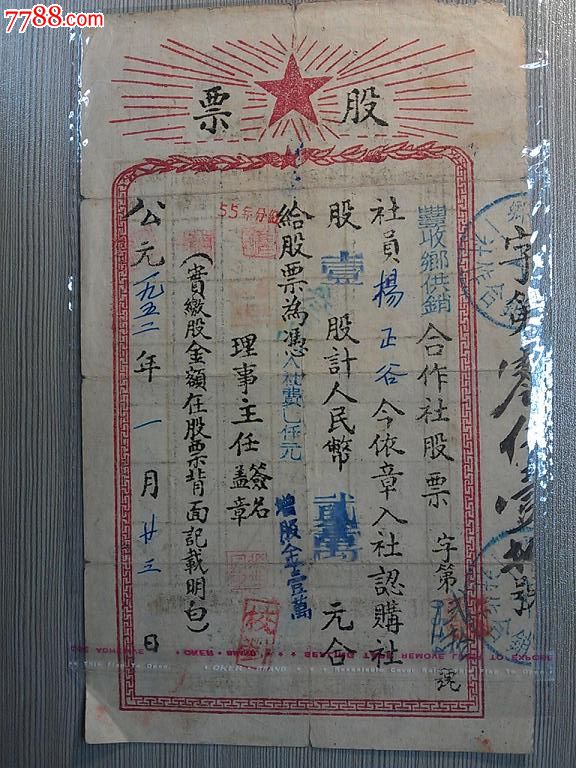 7788.com
股票
豐收鄉供銷合作社股票 字第 號
社員楊正谷今依章入社認購社
股壹股計人民幣貳萬元合
給股票為憑入社費 仟元
增股金壹萬
理事主任 簽名蓋章
(實繳股金額在股票背面記載明白)
公元一九五二年一月廿三日
55年分
字第零 壹 號